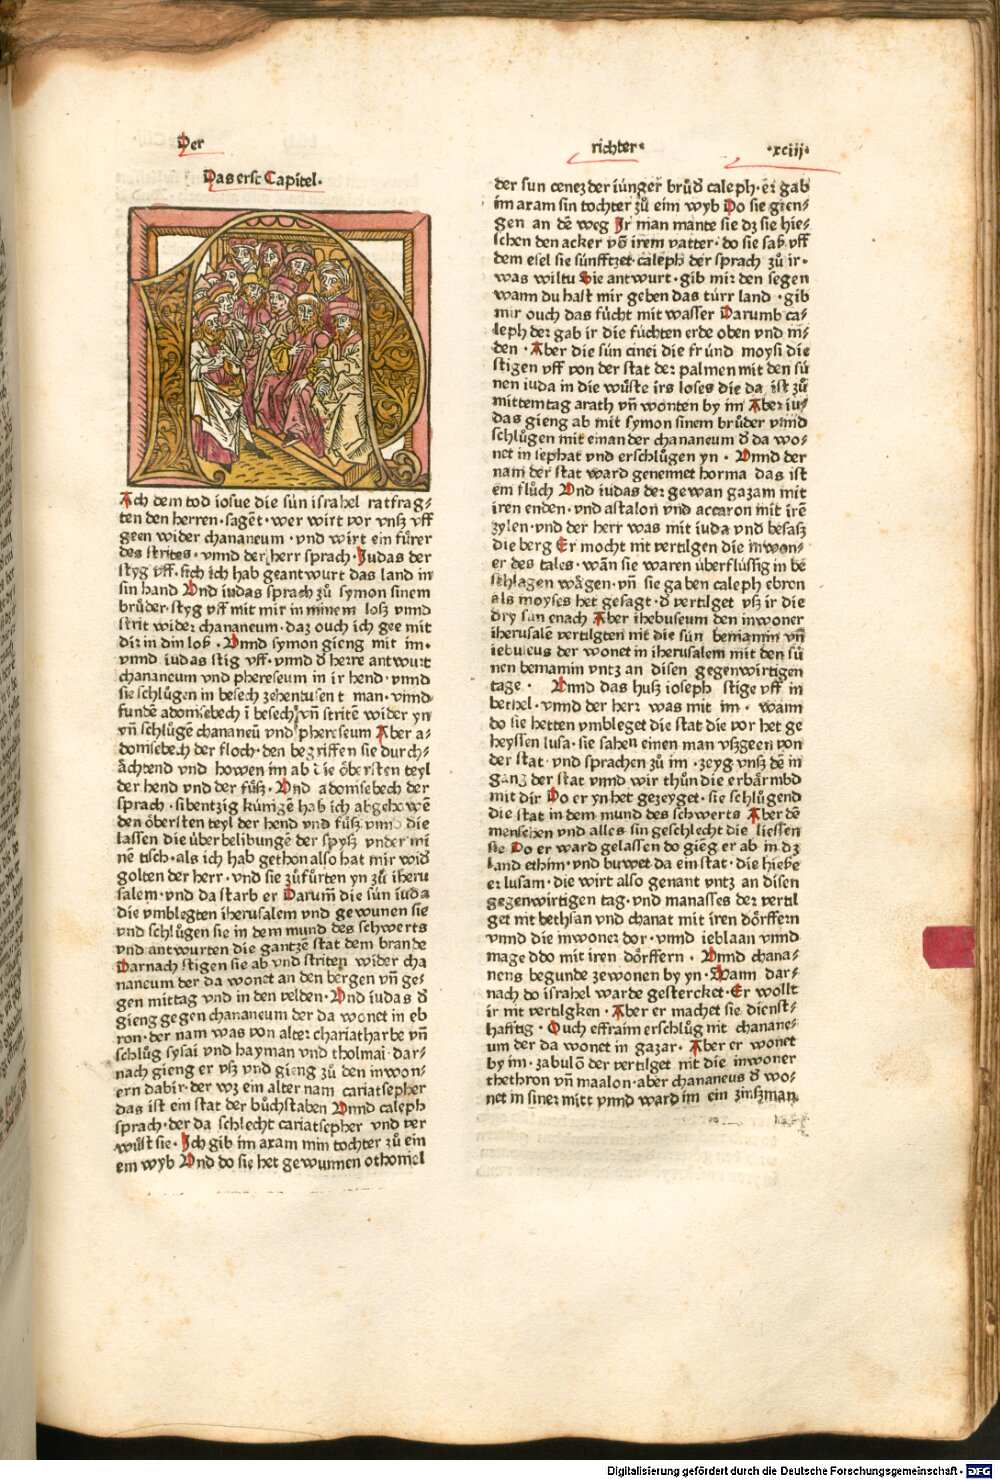 Der
richter·
·xciij·
Das erst Capitel·
Ach dem tod iosue die sün israhel ratfrag⸗
ten den herren· sagēt· wer wirt vor vnsz vff
geen wider chananeum ·vnd wirt ein fürer
des strites· vnnd der herr sprach· Judas der
styg vff· sich ich hab geantwurt das land in
sin hand Und iudas sprach zů symon sinem
brůder· styg vff mit mir in minem losz vnnd
strit wider chananeum· daz ouch ich gee mit
dir in din losz · Unnd symon gieng mit im·
vnnd iudas stig vff· vnnd d̄ herre antwurt
chananeum vnd phereseum in ir hend ·vnnd
sie schlůgen in besech zehentusent man· vnnd
fundē adonisebech ī besech vn̄ stritē wider yn
vn̄ schlůgē chananeū vnd phereseum Aber a⸗
donisebech der floch· den begriffen sie durch⸗
ächtend vnd howen im ab die öbersten teyl
der hend vnd der füsz· Und adonisebech der
sprach ·sibentzig künigē hab ich abgehowē
den öbersten teyl der hend vnd füsz vnnd die
lassen die überbelibungē der spysz vnder mi
nē tisch· als ich hab gethon also hat mir wid̄
golten der herr· vnd sie zůfůrten yn zů iheru
salem· vnd da starb er Darum̄ die sün iuda
die vmblegten iherusalem vnd gewunen sie
vnd schlůgen sie in dem mund des schwerts
vnd antwurten die gantzē stat dem brande
Darnach stigen sie ab vnd striten wider cha
naneum der da wonet an den bergen vn̄ ge⸗
gen mittag vnd in den velden· Und iudas d̄
gieng gegen chananeum der da wonet in eb
ron· der nam was von alter chariatharbe vn̄
schlůg sysai vnd hayman vnd tholmai· dar⸗
nach gieng er vsz vnd gieng zů den inwon⸗
ern dabir· der wz ein alter nam cariatsepher
das ist ein stat der bůchstaben Unnd caleph
sprach· der da schlecht cariatsepher vnd ver
wůst sie· Ich gib im axam min tochter zů ein
em wyb Und do sie het gewunnen othoniel
der sun cenez der iünger brůd̄ caleph· er gab
im axam sin tochter zů eim wyb Do sie gien⸗
gen an dē weg Ir man mante sie dz sie hie⸗
schen den acker vō irem vatter· do sie sasz vff
dem esel sie sünfftzet· caleph der sprach zů ir·
was wiltu Sie antwurt· gib mir den segen
wann du hast mir geben das türr land ·gib
mir ouch das fücht mit wasser Darumb ca⸗
leph der gab ir die füchten erde oben vnd ni⸗
den · Aber die sün cinei die fründ moysi die
stigen vff von der stat der palmen mit den sü
nen iuda in die wůste irs loses die da ist zů
mittemtag arath vn̄ wonten by im Aber iu⸗
das gieng ab mit symon sinem brůder vnnd
schlůgen mit einander chananeum d̄ da wo⸗
net in sephat vnd erschlůgen yn · Unnd der
nam der stat ward genennet horma das ist
ein flůch Und iudas der gewan gazam mit
iren enden· vnd astalon vnd accaron mit irē
zylen ·vnd der herr was mit iuda vnd besasz
die berg Er mocht nit vertilgen die inwon⸗
er des tales· wān sie waren überflüssig in be
schlagen wägen· vn̄ sie gaben caleph ebron
als moyses het gesagt· d̄ vertilget vsz ir die
dry sün enach Aber ihebuseum den inwoner
iherusalē vertilgten nit die sün beniamin vn̄
iebuseus der wonet in iherusalem mit den sü
nen beniamin vntz an disen gegenwirtigen
tage · Unnd das husz ioseph stige vff in
bethel· vnnd der herr was mit im · wann
do sie hetten vmbleget die stat die vor het ge
heyssen lusa· sie sahen einen man vszgeen von
der stat· vnd sprachen zů im ·zeyg vnsz dē in
gang der stat vnnd wir thůn die erbärmbd
mit dir Do er yn het gezeyget· sie schlůgend
die stat in dem mund des schwerts Aber dē
menschen vnd alles sin geschlecht die liessen
sie Do er ward gelassen do gieng er ab in dz
land ethim· vnd buwet da ein stat· die hiesze
er lusam· die wirt also genant vntz an disen
gegenwirtigen tag· vnd manasses der vertil
get nit bethsan vnd chanat mit iren dörffern
vnnd die inwoner dor ·vnnd ieblaan vnnd
mageddo mit iren dörffern · Unnd chana⸗
neus begunde ze wonen by yn· Wann dar⸗
nach do israhel warde gestercket· Er wollt
ir nit vertilgken· Aber er machet sie dienst⸗
hafftig · Ouch effraim erschlůg nit chanane⸗
um der da wonet in gazar· Aber er wonet
by im· zabulō der vertilget nit die inwoner
thethron vn̄ maalon· aber chananeus d̄ wo⸗
net in siner mitt vnnd ward im ein zinszman
Digitalisierung gefördert durch die Deutsche Forschungsgemeinschaft - DFG